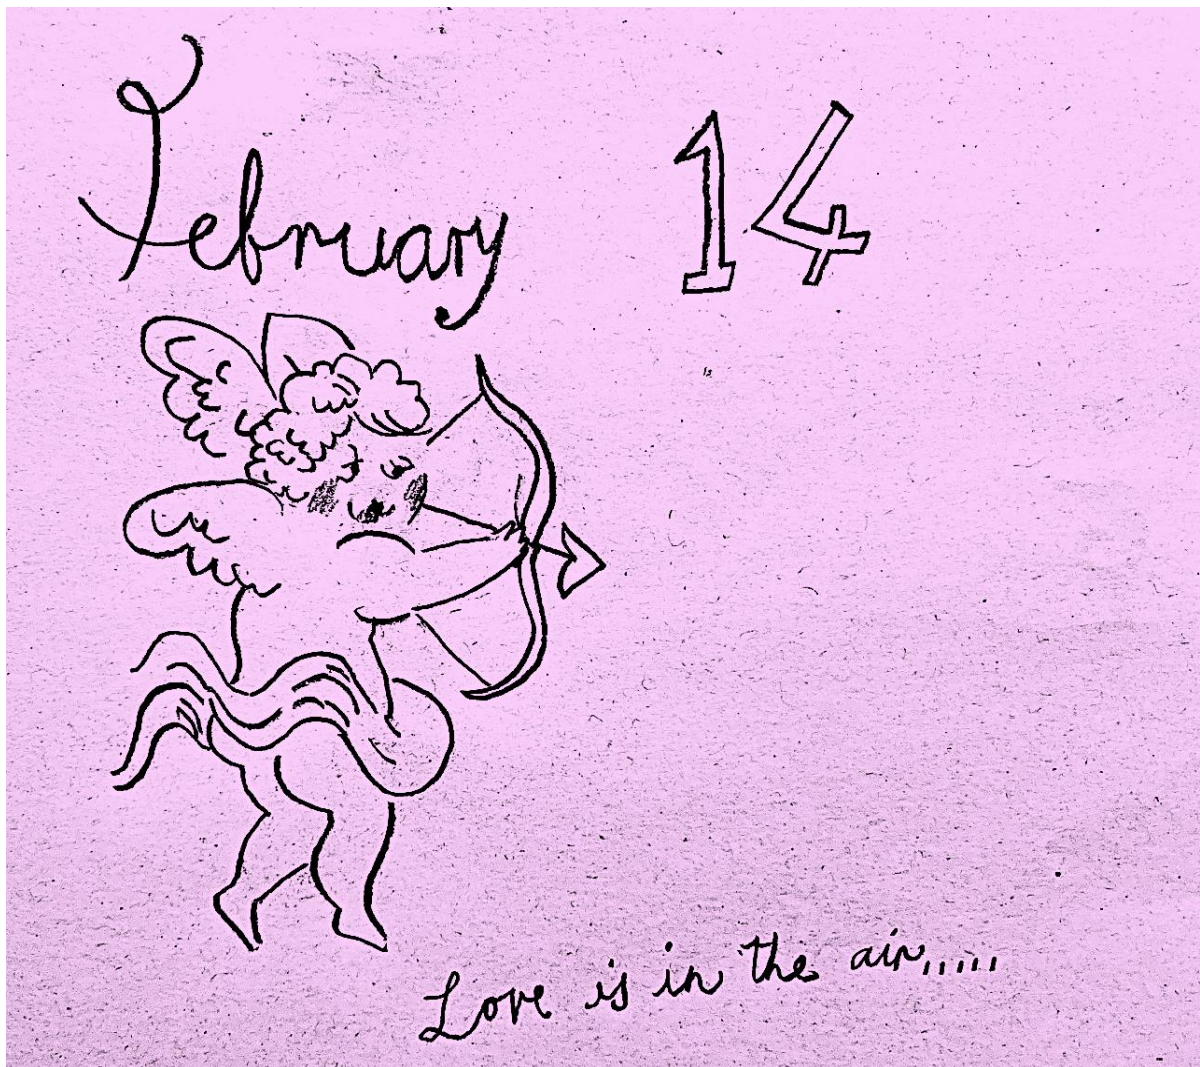 February 14
Love is in the air,,,,,